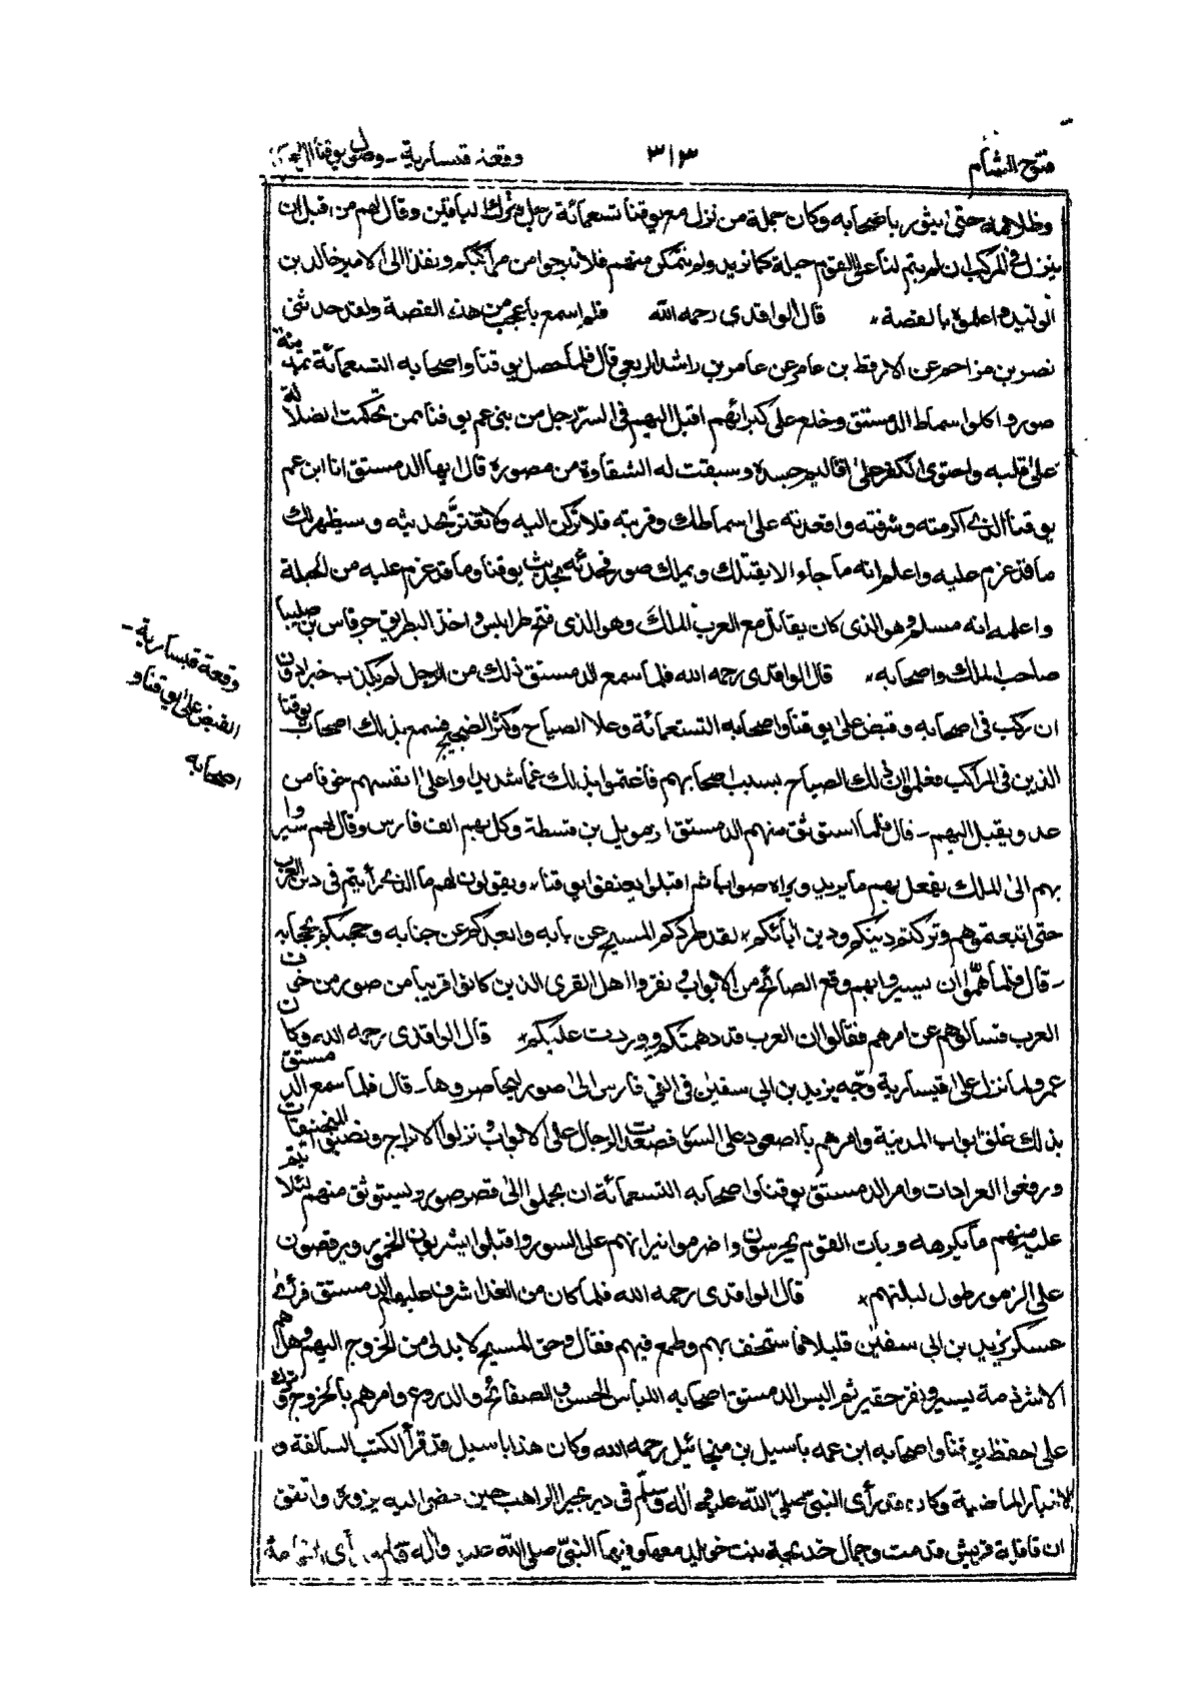 فتوح الشأم
٣١٣
وقعة قيسارية - وصول يوقنا الى
وظلامه حتى يثور باصحابه وكان جملة من نزل مع يوقنا تسعمائة رجل وترك الباقين وقال لهم من قبل ان
ينزل فى المركب ان لم يتم لنا على القوم حيلة كما نريد ولم نتمكن منهم فلا تبرحوا من مراكبكم ونفذ الى الامير خالد بن
الوليد واعلمه بالقصة، قال الواقدى رحمه الله فلم اسمع باعجب من هذه القصة ولقد حدثنى
نصر بن مزاحم عن الارقط بن عامر عن عامر بن راشد الربعى قال فلما حصل يوقنا واصحابه التسعمائة بمدينة
صور واكلوا سماط الدمستق وخلع على كبرائهم اقبل اليهم فى السر رجل من بنى عم يوقنا ممن تحكمت الضلالة
على قلبه واحتوى الكفر على اقاليم جسده وسبقت له الشقاوة من مصوره قال ايها الدمستق انا ابن عم
يوقنا الذى اكرمته وشرفته واقعدته على اسماطك وقربته فلا تركن اليه ولا تغتر بحديثه وسيظهر لك
ما قد عزم عليه واعلم انه ما جاء الا يقتلك ويملك صور فحدثه بحديث يوقنا وما قد عزم عليه من الحيلة
واعلمه انه مسلم وهو الذى كان يقاتل مع العرب الملك وهو الذى فتح طرابلس واخذ البطريق جرفاس بن صليبا
صاحب الملك واصحابه، قال الواقدى رحمه الله فلما سمع الدمستق ذلك من الرجل لم يكذب خبرا دون
ان ركب فى اصحابه وقبض على يوقنا واصحابه التسعمائة وعلا الصياح وكثر الضجيج فسمع بذلك اصحاب يوقنا
الذين فى المراكب فعلموا ان ذلك الصياح بسبب اصحابهم فاغتموا بذلك غما شديدا واعلى انفسهم خوفا من
عدو يقبل اليهم - قال فلما استوثق منهم الدمستق ارمويل بن قسطة وكل بهم الف فارس وقال لهم سيروا
بهم الى الملك يفعل بهم ما يريد ويراه صوابا ثم اقبلوا يعنفوا يوقنا، ويقولون لهم ما الذى رأيتم فى دين العرب
حتى اتبعتموهم وتركتم دينكم ودين ابائكم، لقد طردكم المسيح عن بابه وابعدكم عن جنابه وحجبكم بحجابه
- قال فلما همّوا ان يسيروا بهم وقع الصائح من الابواب ونفروا اهل القرى الذين كانوا قريبا من صور من خوف
العرب فسألوهم عن امرهم فقالوا ان العرب قد دهمتكم ووردت عليكم، قال الواقدى رحمه الله وكان
عمرو لما نزل على قيسارية وجّه يزيد بن ابى سفيٰن فى الفى فارس الى صور ليحاصروها - قال فلما سمع الدمستق
بذلك غلق ابواب المدينة وامرهم بالصعود على السور فصعدت الرجال على الابواب ونزلوا الابراج ونصبوا المنجنيقات
ورفعوا العرادات وامر الدمستق بيوقنا واصحابه التسعمائة ان يحملوا الى قصر صور ويستوثق منهم لئلا يتم
عليه منهم ما يكرهه وبات القوم يحرسون واضرموا نيرانهم على السور واقبلوا يشربون الخمور ويرقصون
على الزمور طول ليلتهم، قال الواقدى رحمه الله فلما كان من الغد اشرف عليهم الدمستق فرأى
عسكر يزيد بن ابى سفيٰن قليلا فاستخف بهم وطمع فيهم فقال وحق المسيح لا بد لى من الخروج اليهم وما هم
الا شرذمة يسير ونفر حقير ثم البس الدمستق اصحابه اللباس الحسن والصفائح والدروع وامرهم بالخروج وترك
على حفظ يوقنا واصحابه ابن عمه باسيل بن منجائيل رحمه الله وكان هذا باسيل قد قرأ الكتب السالفة و
الاخبار الماضية وكان قد رأى النبىّ صلى الله عليه واله وسلّم فى دير بحيرا الراهب حين مضى اليه يزوره واتفق
ان قافلة قريش قدمت وجمال خديجة بنت خويلد معها وفيها النبىّ صلى الله عليه واله وسلم
وقعة قيسارية -
القبض على يوقنا و
اصحابه